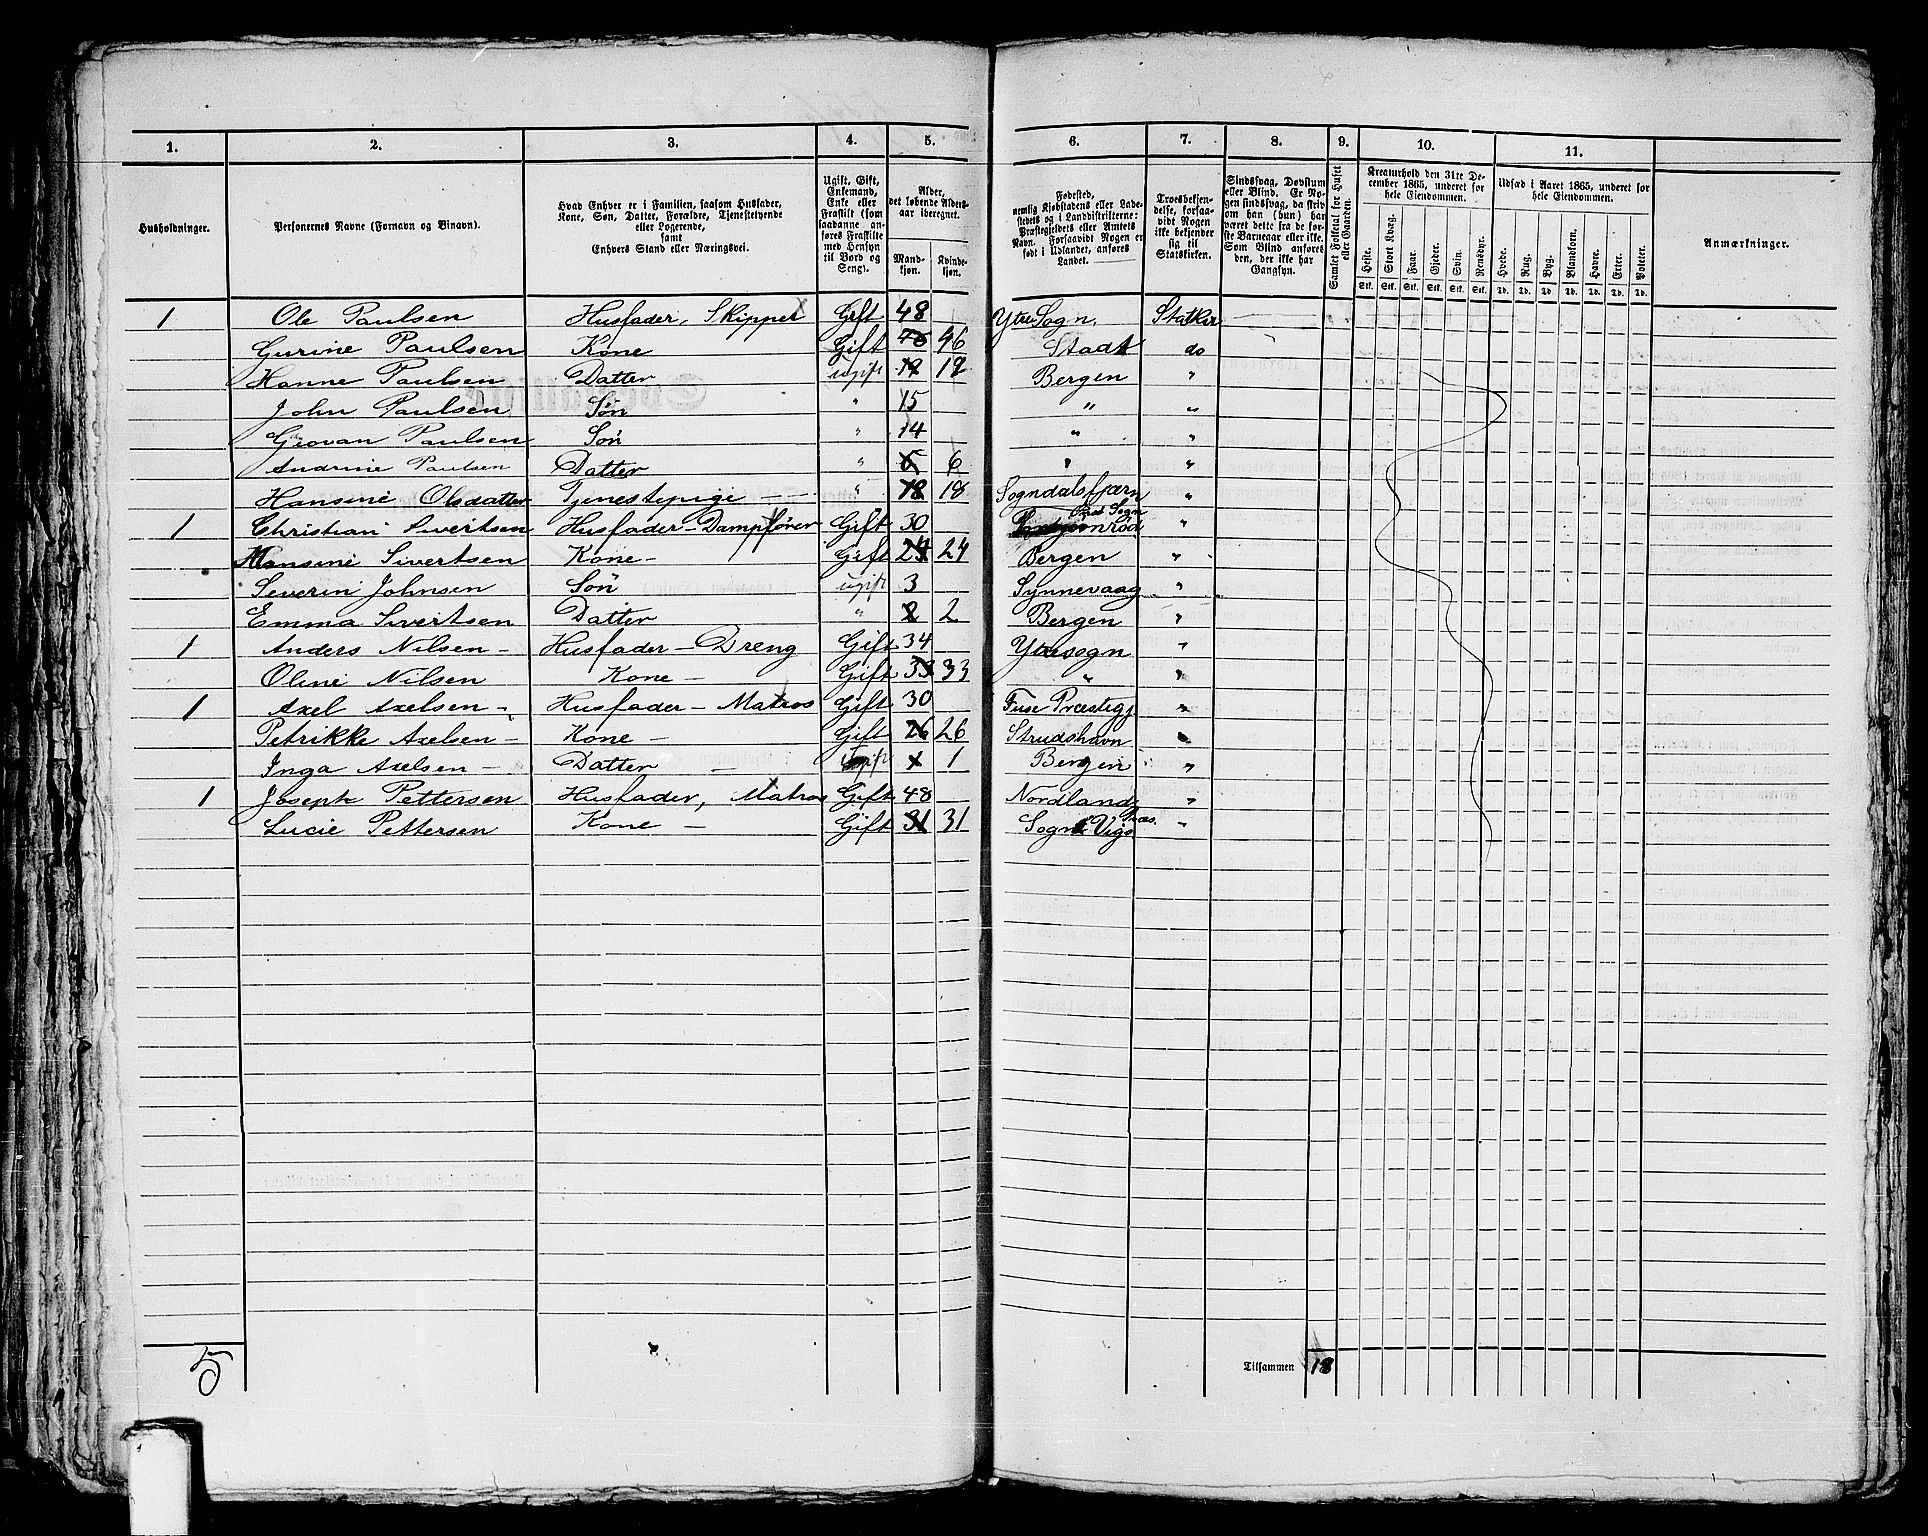 1. 2. 3. 4. 5. 6. 7. 8. 9. 10. 11.
Husholdninger.
Personernes Navne (Fornavn og Binavn).
Hvad Enhver er i Familien, saasom Husfader,
Kone, Søn, Datter, Forældre, Tjenestetyende
eller Logerende,
samt
Enhvers Stand eller Næringsvei.
Ugift, Gift,
Enkemand,
Enke eller
Fraskilt (som
saadanne an-
føres Fraskilte
med Hensyn
til Bord og
Seng).
Alder,
det løbende Alders-
aar iberegnet.
Mand-
kjøn.
Kvinde-
kjøn.
Fødested,
nemlig Kjøbstadens eller Lade-
stedets og i Landdistrikterne:
Præstegjeldets eller Amtets
Navn. Forsaavidt Nogen er
født i Udlandet, anføres
Landet.
Troesbekjen-
delse, forsaa-
vidt Nogen
ikke bekjender
sig til
Statskirken.
Sindssvag, Døvstum
eller Blind. Er No-
gen sindssvag, da skriv
om han (hun) har
været dette fra de før-
ste Barneaar eller ikke.
Som Blind anføres
den, der ikke har
Gangsyn.
Samlet Folketal for Huset
eller Gaarden.
Kreaturhold den 31te De-
cember 1865, underet for
hele Eiendommen.
Heste. Stort Kvæg. Faar. Gjeder. Svin. Rensdyr.
Stk. Stk. Stk. Stk. Stk. Stk.
Udsæd i Aaret 1865, underet for
hele Eiendommen.
Hvede. Rug. Byg. Blandkorn. Havre. Erter. Poteter.
Td. Td. Td. Td. Td. Td. Td.
Anmærkninger.
1 Ole Paulsen Husfader, Skipper Gift 48 Ytre Sogn. Statskir
Gurine Paulsen Kone Gift 46 Stadt do
Hanne Paulsen Datter ugift 19 Bergen "
John Paulsen Søn " 15 " "
Giovan Paulsen Søn " 14 " "
Andrine Paulsen Datter " 6 " "
Hansine Olsdatter Tjenestepige " 18 18 Sogndalsfjæren "
1 Christian Sivertsen Husfader - Dampfører Gift 30 Sogn "
Hansine Sivertsen Kone - Gift 24 24 Bergen "
Severin Johnsen Søn ugift 3 Synnevaag "
Emma Sivertsen Datter " 2 2 Bergen "
1 Anders Nilsen - Husfader - Dreng Gift 34 Ytresogn "
Oline Nilsen Kone - Gift 33 33 " "
1 Axel Axelsen - Husfader - Matros Gift 30 Fuse Præstegj. "
Petrikke Axelsen - Kone - Gift 26 26 Strudshavn "
Inga Axelsen - Datter - ugift 1 1 Bergen "
1 Joseph Pettersen Husfader, Matros Gift 48 Nordland "
Lucie Pettersen Kone - Gift 31 31 Sogn "
5
Tilsammen 18